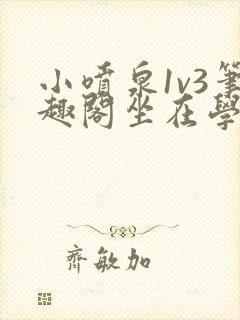 小噴泉1v3筆
趣閣坐在學
齊敏加